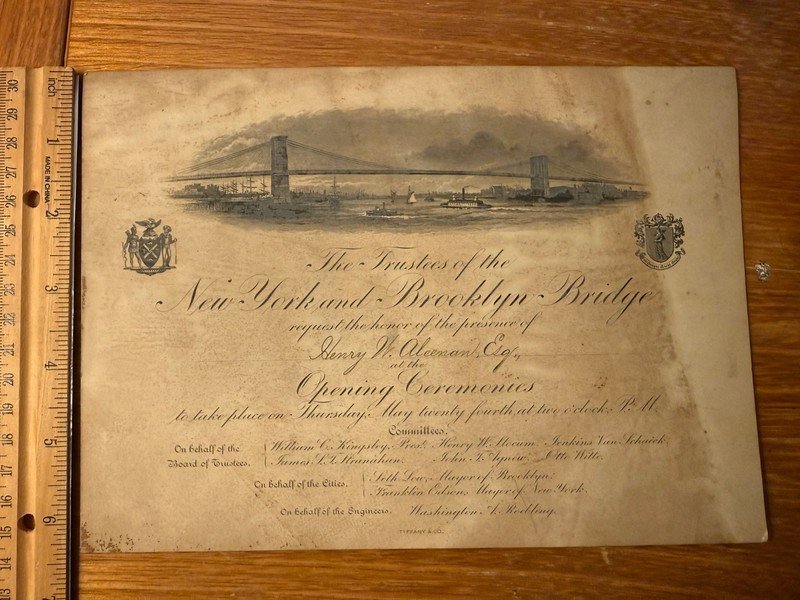 The Trustees of the
New York and Brooklyn Bridge
request the honor of the presence of
Henry W. Aleenan, Esq.,
at the
Opening Ceremonies
to take place on Thursday, May twenty fourth, at two o'clock, P.M.
Committees.
On behalf of the Board of Trustees.
William C. Kingsley, Prest. Henry W. Slocum. Jenkins Van Schaick.
James S. T. Stranahan. John T. Agnew. Otto Witte.
On behalf of the Cities.
Seth Low, Mayor of Brooklyn.
Franklin Edson, Mayor of New York.
On behalf of the Engineers. Washington A. Roebling.
TIFFANY & CO.
inch
1
2
3
4
5
6
7
MADE IN CHINA
30
29
28
27
26
25
24
23
22
21
20
19
18
17
16
15
14
13